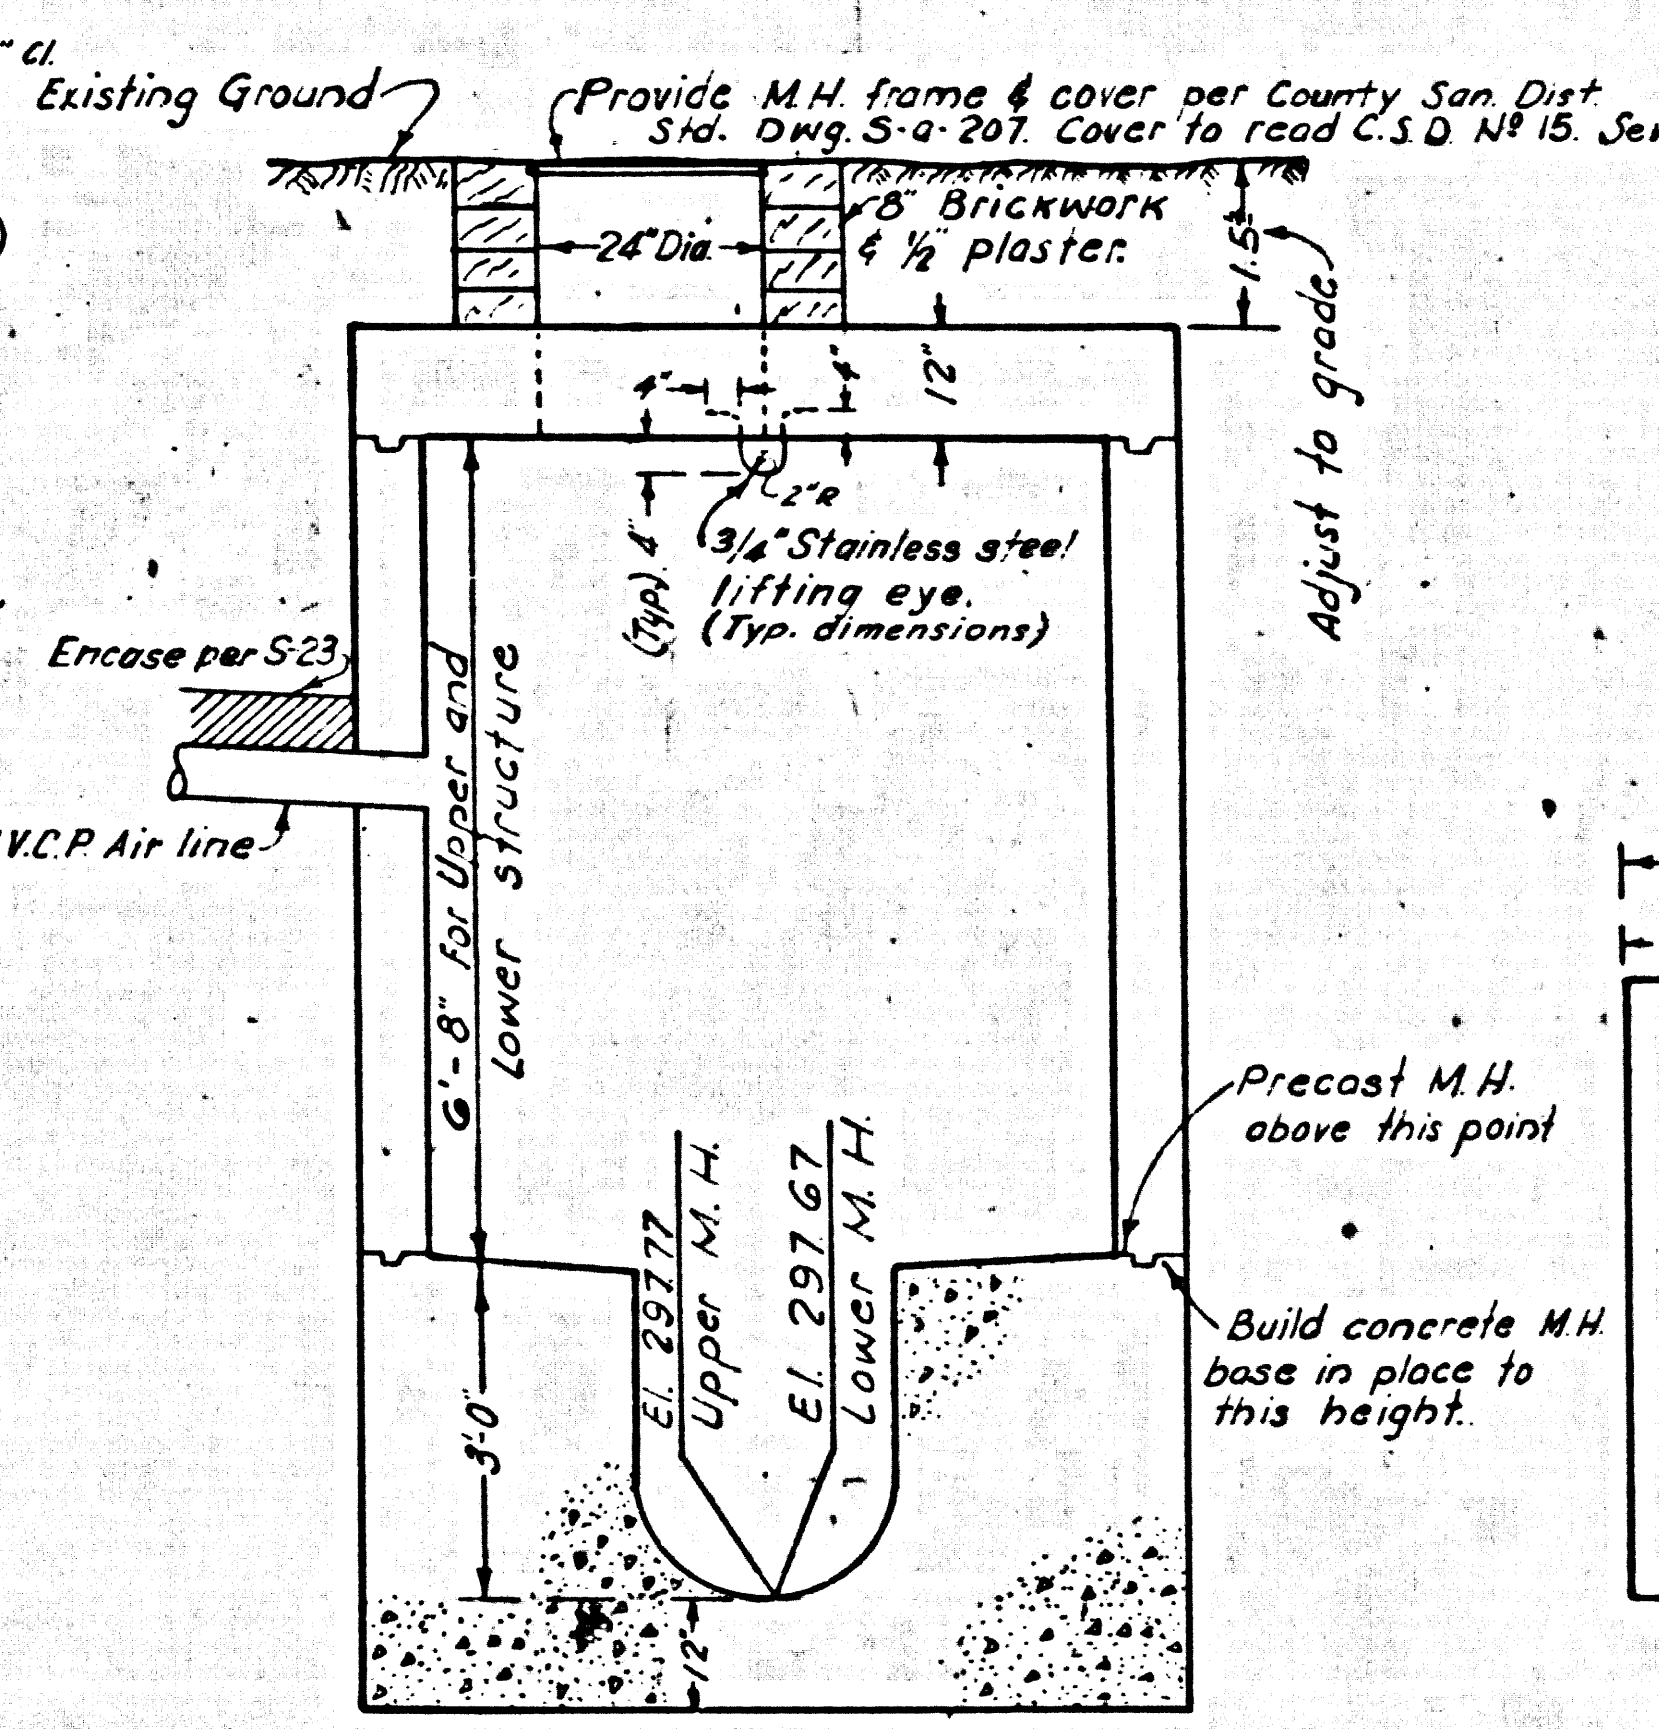 " Cl.
Existing Ground
Provide M.H. frame & cover per County San. Dist.
Std. Dwg. S-a-207. Cover to read C.S.D. Nº 15. Sew
8" Brickwork
& ½" plaster.
24" Dia.
1.5'±
Adjust to grade
4"
4"
12"
2"R
(Typ). 4"
3/4" Stainless steel
lifting eye.
(Typ. dimensions)
Encase per S-23
V.C.P. Air line
6'-8" For Upper and
Lower structure
Precast M.H.
above this point
El. 297.77
Upper M.H.
El. 297.67
Lower M.H.
Build concrete M.H.
base in place to
this height.
3'-0"
12"